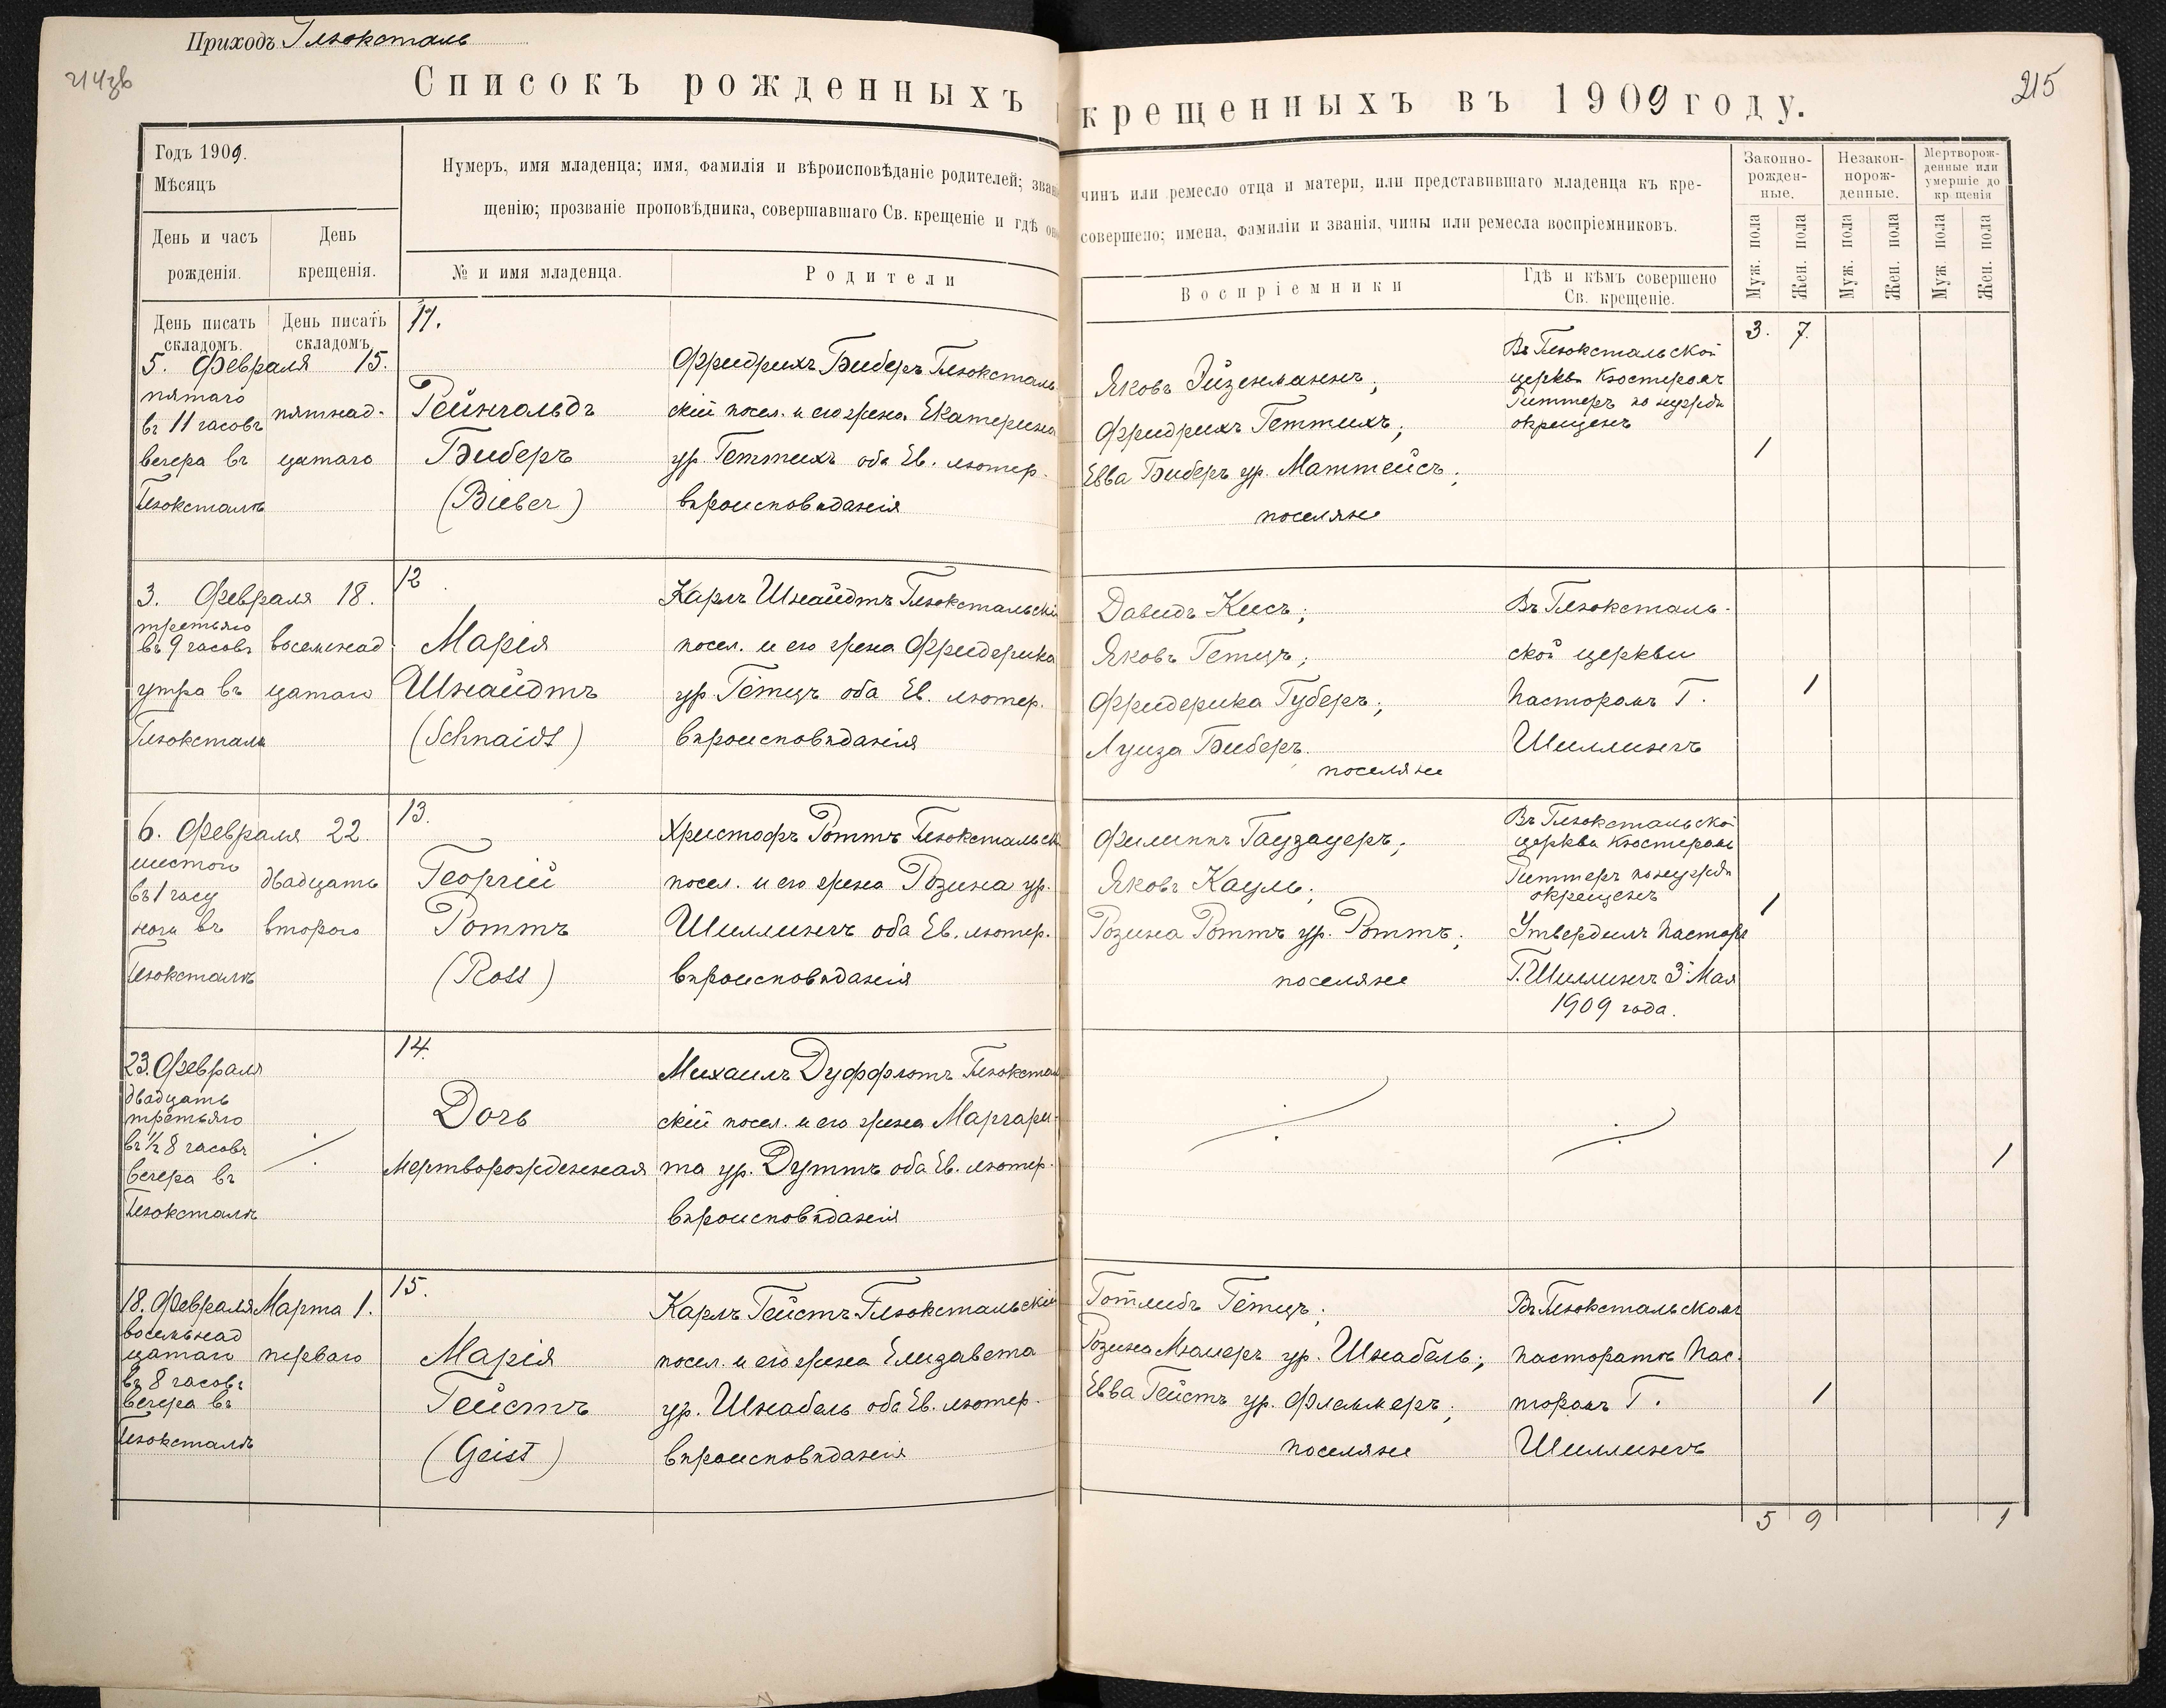 Приходъ Глюксталь
214зв
215
Списокъ рожденныхъ
крещенныхъ въ 1909 году.
Годъ 1909.
Мѣсяцъ
День и часъ рожденія.
День крещенія.
Нумеръ, имя младенца; имя, фамилія и вѣроисповѣданіе родителей; зва
щенію; прозваніе проповѣдника, совершавшаго Св. крещеніе и гдѣ
№ и имя младенца.
Родители
чинъ или ремесло отца и матери, или представившаго младенца къ кре-
совершено; имена, фамиліи и званія, чины или ремесла воспріемниковъ.
Воспріемники
Гдѣ и кѣмъ совершено
Св. крещеніе.
Законно-
рожден-
ные.
Незакон-
норож-
денные.
Мертворож-
денные или
умершіе до
крещенія
Муж. пола
Жен. пола
Муж. пола
Жен. пола
Муж. пола
Жен. пола
День писать
складомъ.
День писать
складомъ
11.
5. Февраля 15.
пятаго
въ 11 часовъ
вечера въ
Глюксталѣ
пятнад-
цатаго
Рейнгольдъ
Биберъ
(Bieber)
Фридрихъ Биберъ Глюксталь
скій посел. и его жена Екатерина
ур. Геттихъ оба Ев. лютер.
вѣроисповѣданія
Яковъ Эйзенманнъ;
Фридрихъ Геттихъ;
Евва Биберъ ур. Маттейсъ;
поселяне
Въ Глюкстальской
церкви Кюстеромъ
Риттеръ по нуждѣ
окрещенъ
3. 7.
1
12
3. Февраля 18.
третьяго
въ 9 часовъ
утра въ
Глюксталѣ
восемнад
цатаго
Марія
Шнайдтъ
(Schnaidt)
Карлъ Шнайдтъ Глюкстальскі
посел. и его жена Фридерика
ур. Гётцъ оба Ев. лютер.
вѣроисповѣданія
Давидъ Кисъ;
Яковъ Гетцъ;
Фридерика Губеръ;
Луиза Биберъ.
поселяне
Въ Глюксталь-
ской церкви
Пасторомъ Г.
Шиллингъ
1
13.
6. Февраля 22.
шестого
въ 1 часу
ночи въ
Глюксталѣ
двадцать
второго
Георгій
Роттъ
(Rott)
Христофъ Роттъ Глюкстальск
посел. и его жена Розина ур.
Шиллингъ оба Ев. лютер.
вѣроисповѣданія
Филиппъ Гаузауеръ;
Яковъ Кауль;
Розина Роттъ ур. Роттъ;
поселяне
Въ Глюкстальской
церкви Кюстеромъ
Риттеръ по нуждѣ
окрещенъ
Утвердилъ Пасторъ
Г. Шиллингъ 3 Мая
1909 года.
1
14.
23. Февраля
двадцать
третьяго
въ ½ 8 часовъ
вечера въ
Глюксталѣ
Дочь
мертворожденная
Михаилъ Дуффлотъ Глюкстал
скій посел. и его жена Маргари-
та ур. Дуттъ оба Ев. лютер.
вѣроисповѣданія
1
15.
18. Февраля Марта 1.
восемьнад
цатаго
въ 8 часовъ
вечера въ
Глюксталѣ
перваго
Марія
Гейстъ
(Geist)
Карлъ Гейстъ Глюкстальскій
посел. и его жена Елизавета
ур. Шнабель оба Ев. лютер.
вѣроисповѣданія
Готлибъ Гётцъ;
Розина Мюллеръ ур. Шнабель;
Евва Гейстъ ур. Флеммеръ;
поселяне
Въ Глюкстальскомъ
пасторатѣ Пас-
торомъ Г.
Шиллингъ
1
5 9 1